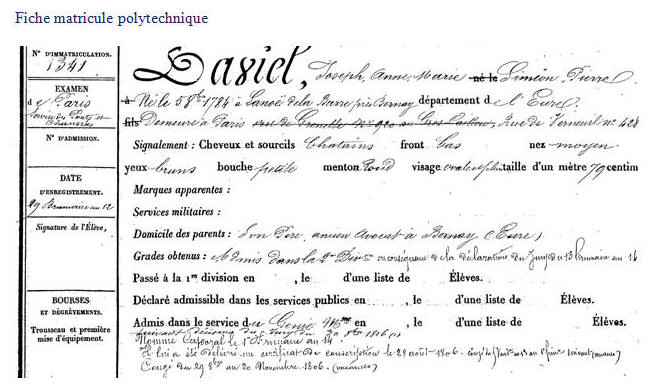 Fiche matricule polytechnique
N° D'IMMATRICULATION.
1341
EXAMEN
de Paris
N° D'ADMISSION.
DATE
D'ENREGISTREMENT.
29 Brumaire an 12
Signature de l'Élève,
BOURSES
ET DÉGRÈVEMENTS.
Trousseau et première
mise d'équipement.
Daviel, Joseph, Anne, Marie né le Siméon, Pierre
à Né le 5 8bre 1784 à Lanoë de la Barre près Bernay département de l'Eure,
fils Demeure à Paris rue de Grenelle N° au Gros Caillou, Rue de Verneuil n° 428
Signalement : Cheveux et sourcils Chatains front bas nez moyen
yeux bruns bouche petite menton rond visage ovale et plein taille d'un mètre 79 centim
Marques apparentes :
Services militaires :
Domicile des parents : Son Père, ancien Avocat à Bernay (Eure)
Grades obtenus : Admis dans la 1e Divon en conséquence de la déclaration du Jury du 13 Brumaire an 14
Passé à la 1re division en , le d'une liste de Élèves.
Déclaré admissible dans les services publics en , le d'une liste de Élèves.
Admis dans le service du Génie Mme en , le d'une liste de Élèves.
suivant décision du Jury du 8bre 1806
Nommé Caporal le 1er Frimaire an 14
Il lui a été délivré un certificat de conscription le 28 août 1806.
Congé du 29 8bre au 20 Novembre 1806. (vacances)